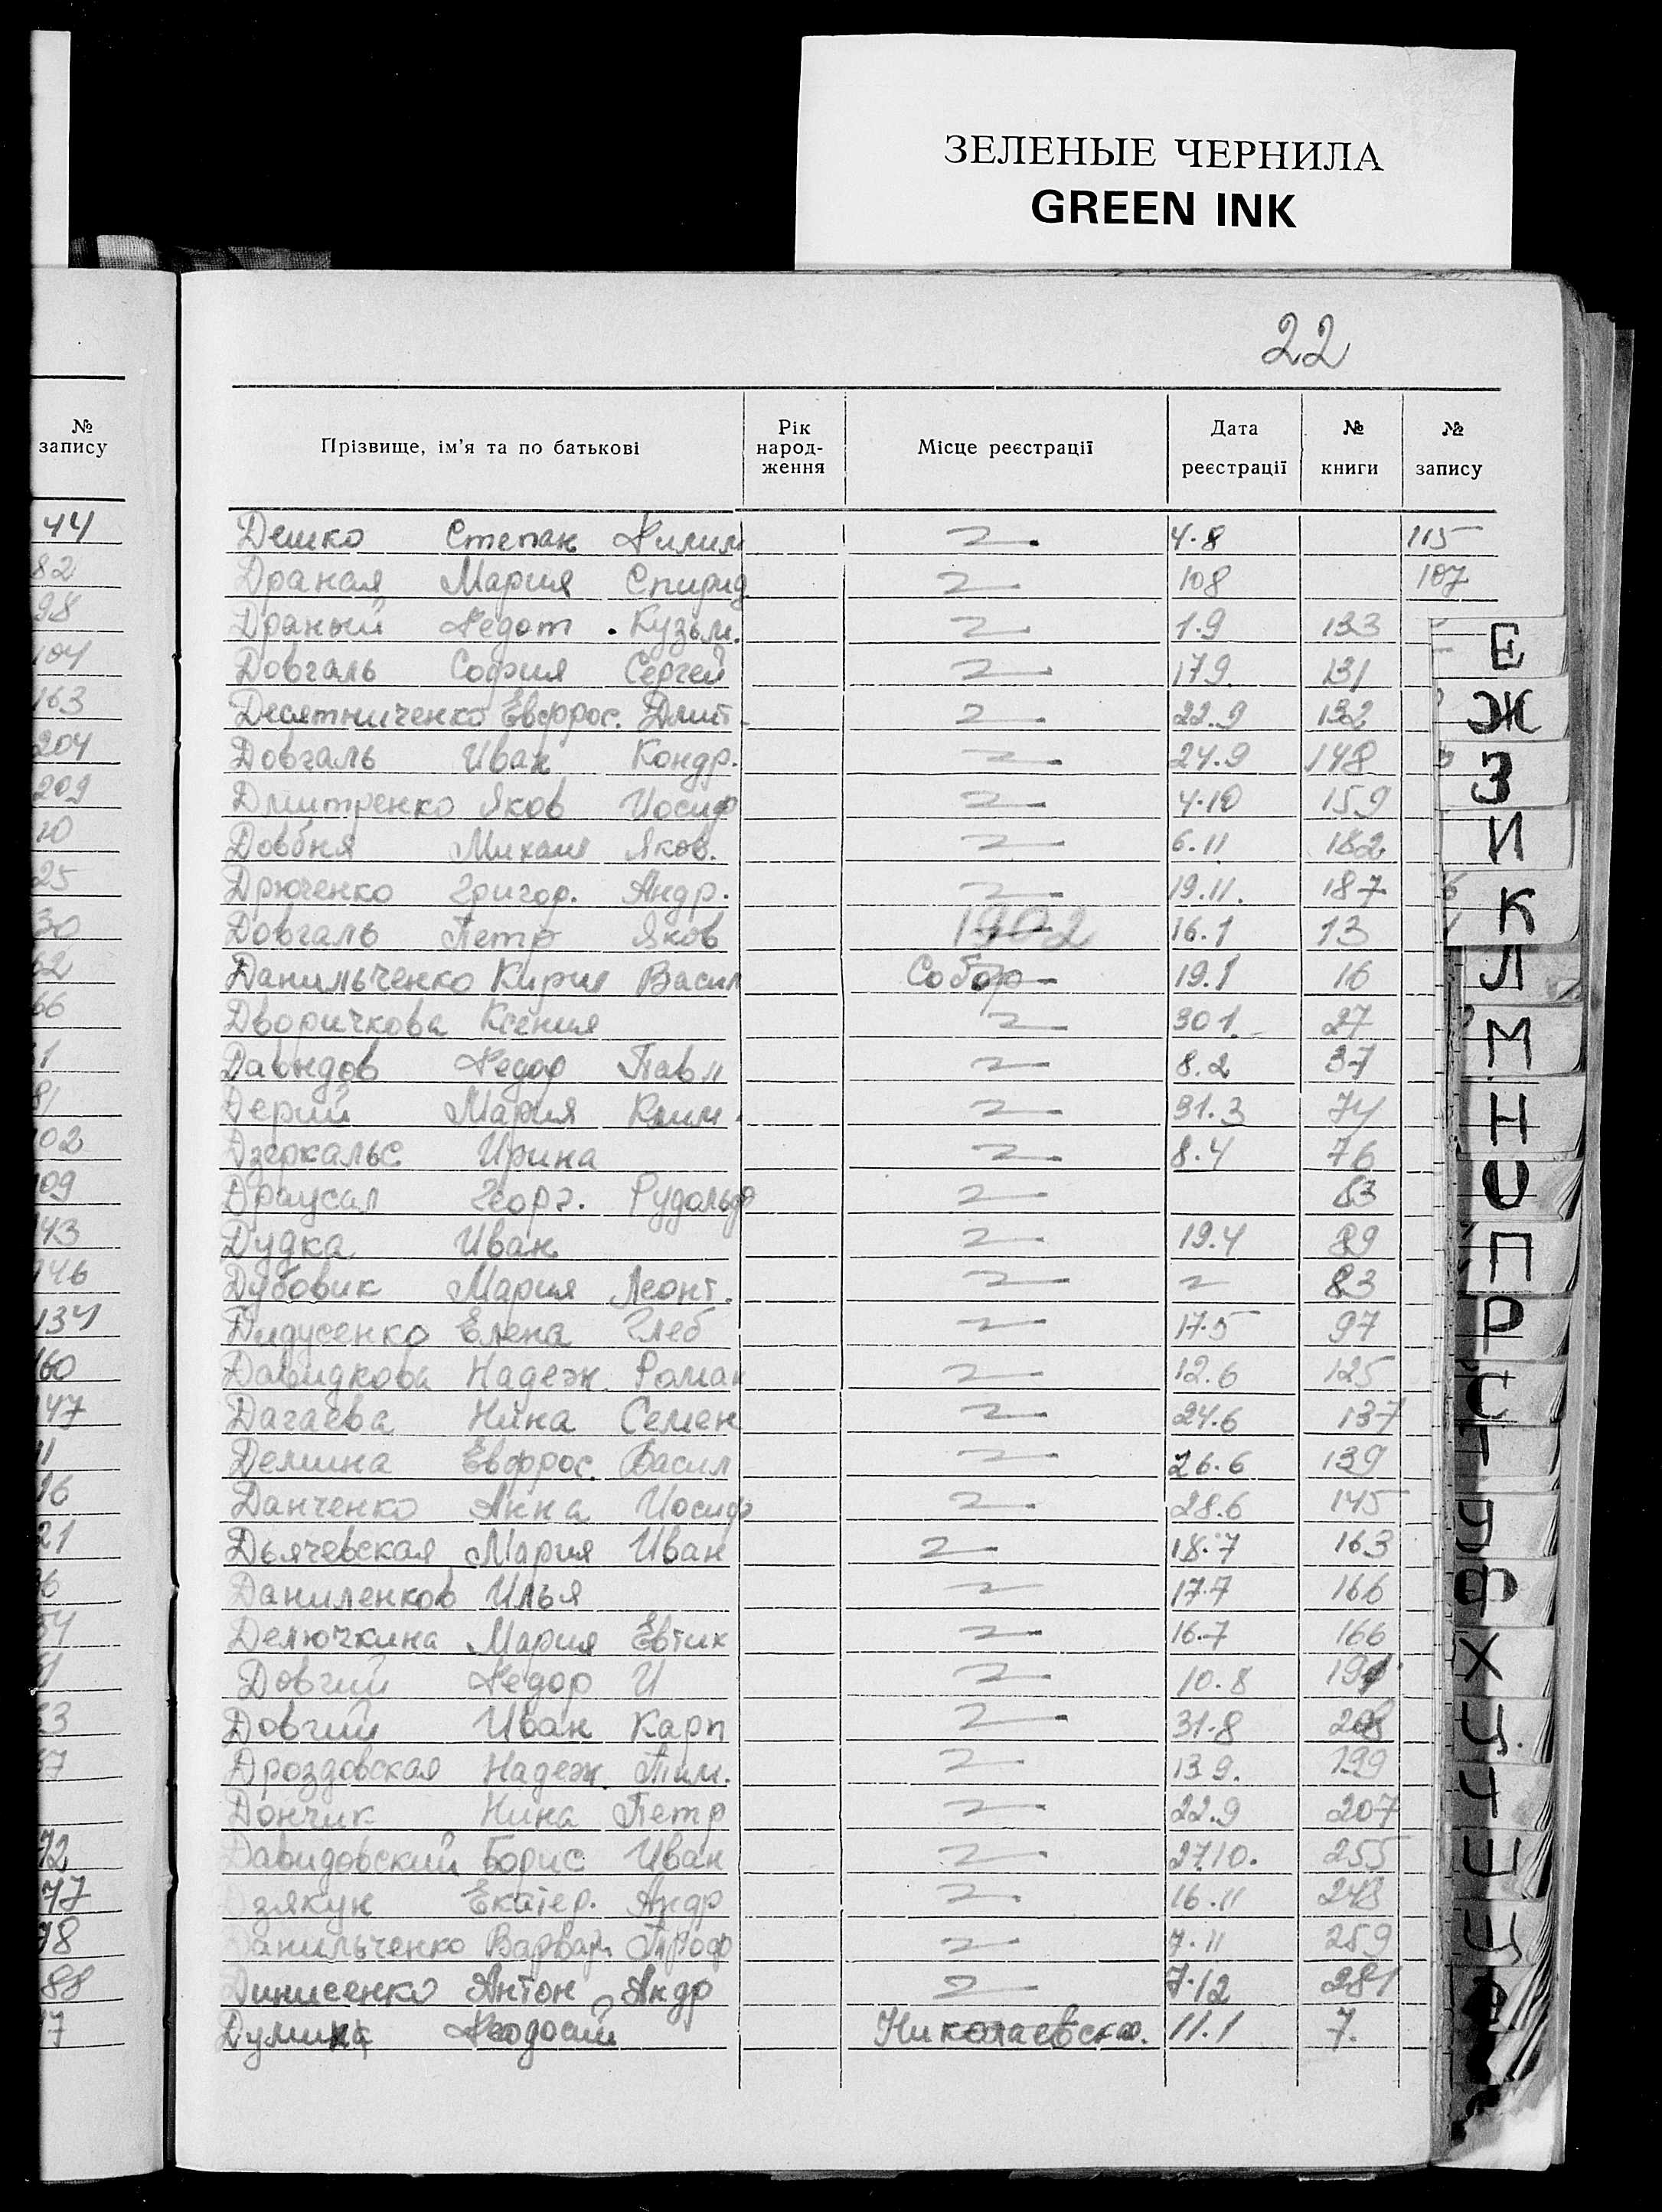 ЗЕЛЕНЫЕ ЧЕРНИЛА
GREEN INK
22
№ запису
Прізвище, ім'я та по батькові Рік народ-ження Місце реєстрації Дата реєстрації № книги № запису
44 Дешко Степан Филим 4.8 115
82 Драная Мария Спирид 108 107
98 Драный Федот Кузьм. 1.9 133
104 Довгаль София Сергей 179 131
163 Десятниченко Евфрос. Дмит. 22.9 132
204 Довгаль Иван Кондр. 24.9 148
209 Дмитренко Яков Иосиф 4.10 159
10 Довбня Михаил Яков. 6.11 182
25 Дрюченко Григор. Андр. 19.11. 187
30 Довгаль Петр Яков 1902 16.1 13
62 Данильченко Кирил Васил Собор 19.1 16
66 Дворичкова Ксения 30 1. 27
1 Давидов Федор Павл 8.2 37
81 Дерий Мария Клим. 31.3 74
102 Дзеркальс Ирина 8.4 76
109 Георг. Рудольф 83
143 Дудка Иван 19.4 89
146 Дубовик Мария Леонт. 83
134 Дидусенко Елена Глеб 17.5 97
160 Давидкова Надеж Роман 12.6 125
147 Дагаева Нина Семен 24.6 137
11 Демина Евфрос. Васил 26.6 139
16 Данченко Анна Иосиф 28.6 145
21 Дьячевская Мария Иван 18.7 163
36 Даниленков Илья 17.7 166
54 Делючкина Мария Евтих 16.7 166
Довгий Федор И 10.8
23 Довгий Иван Карп 31.8
37 Дроздовская Надеж. Тим. 13 9. 199
Дончик Нина Петр 22.9 207
72 Давидовский Борис Иван 27.10. 255
77 Дзякун Екатер. Андр 16.11 243
78 Данильченко Варвар. Троф 7.11 259
88 Динисенко Антон Андр 7.12 281
17 Феодосий Николаевская. 11.1 7.
Е
Ж
З
И
К
Л
М
Н
О
П
Р
С
Т
У
Ф
Х
Ц
Ч
Ш
Щ